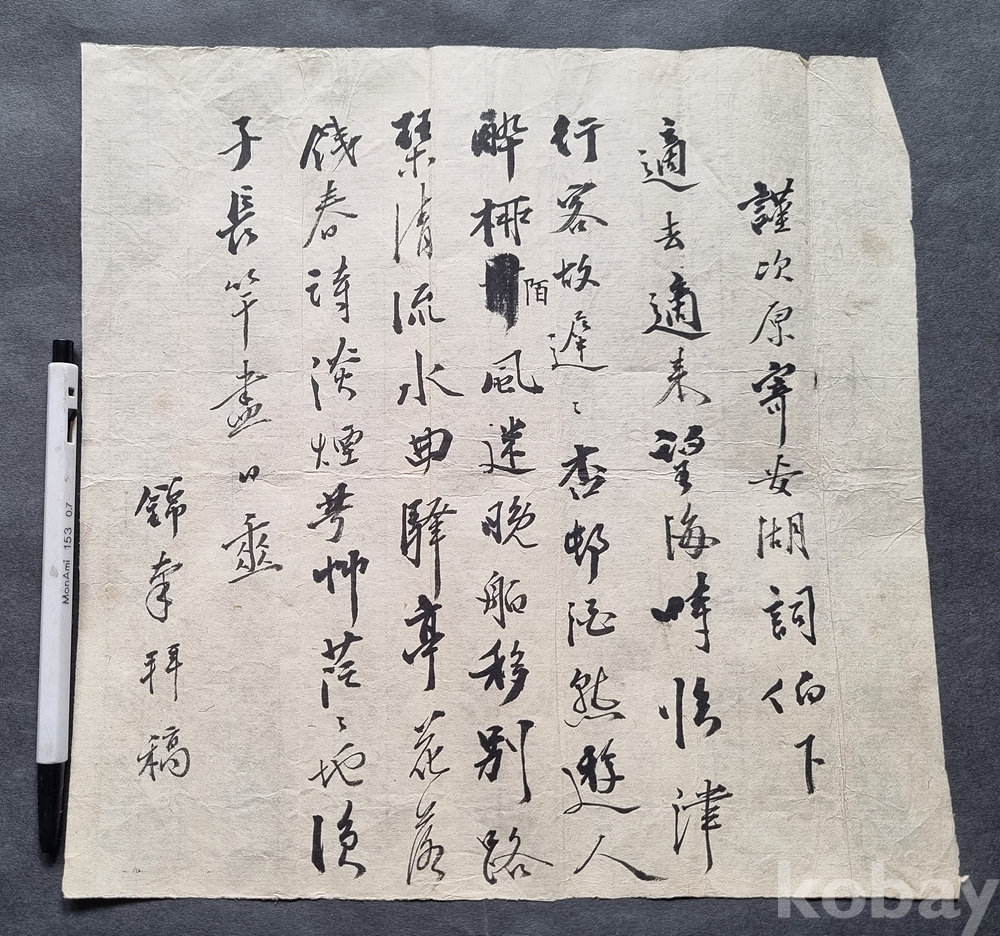 謹次原寄安湖詞伯下
適去適来望海時臨津
行客故遲〻杏邨酒熟遊人
醉柳陌風迷晚船移別路
琴清流水曲驛亭花落
餞春詩淡煙芳艸茫〻地漁
子長竿盡日垂
錦拜稿
MonAmi 153 0.7
kobay